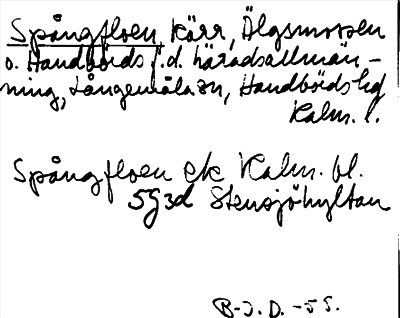 Spångfloen, kärr, Älgsmossen
o. Handbörds f.d. häradsallmän-
ning, Långemåla sn, Handbörds hd
Kalm. l.
Spångfloen ek Kalm. bl.
5g3d Stensjöhyltan
B-J. D. -55.